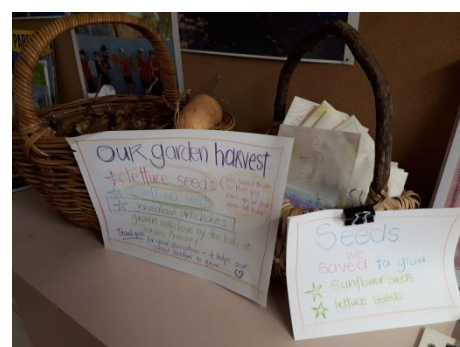 our garden harvest
lettuce seeds
sunflower seeds
Jerusalem artichokes
grown with love by the
Thank you for your donations - it helps our
school gardens to grow
Seeds
we
saved to grow
sunflower seeds
lettuce seeds